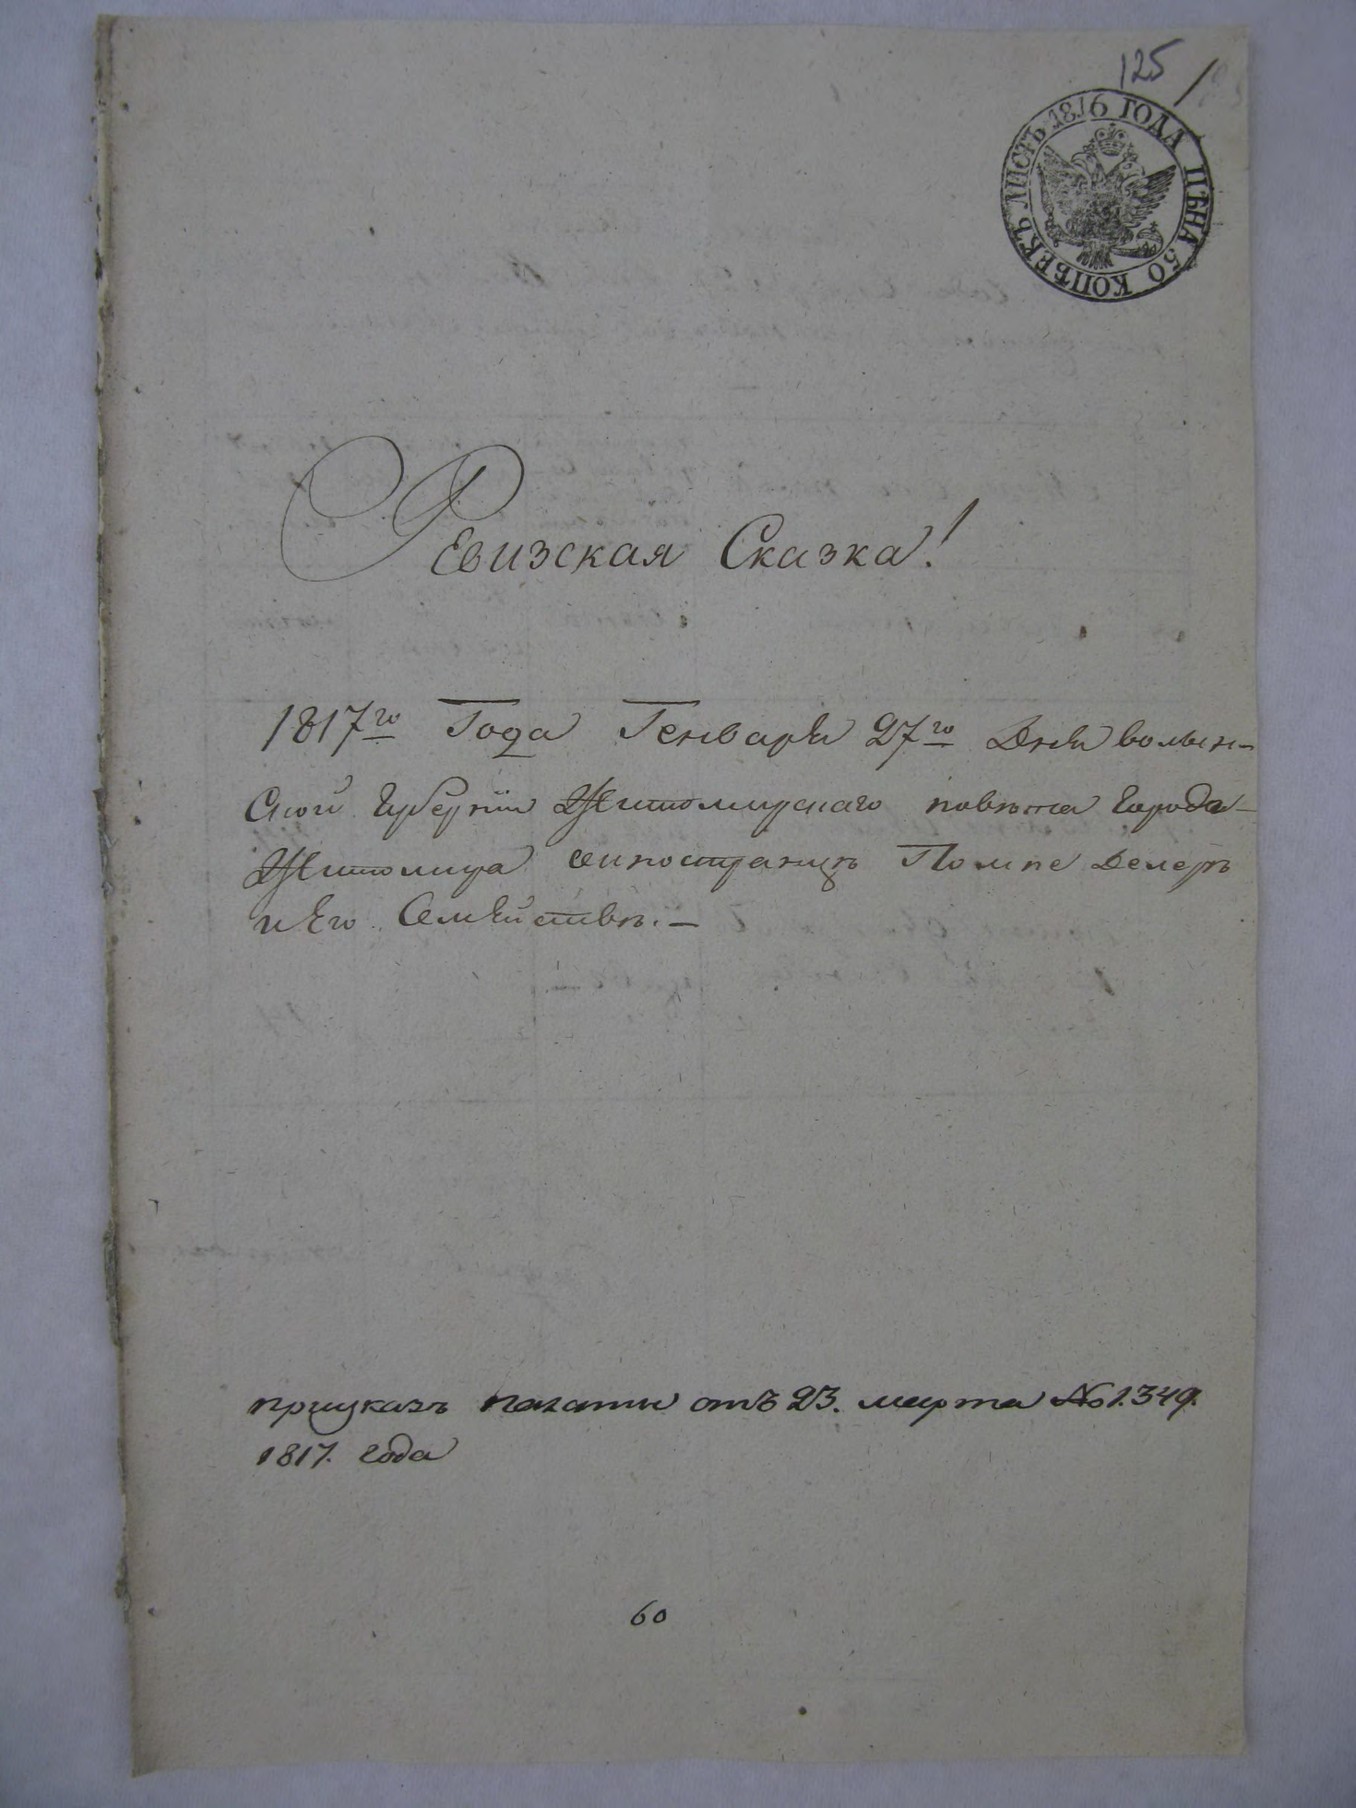 125
ЛИСТЪ 1816 ГОДА ЦѢНА 50 КОПѢЕКЪ
Ревизская Сказка!
1817го Года Генваря 27го Дня волын-
Ской Губернїи Житомирскаго повѣта Города
Житомира иностранцъ Помпе Делеръ
и Его Семействѣ.
приказъ палаты отъ 23. марта №1.349.
1817. года
60